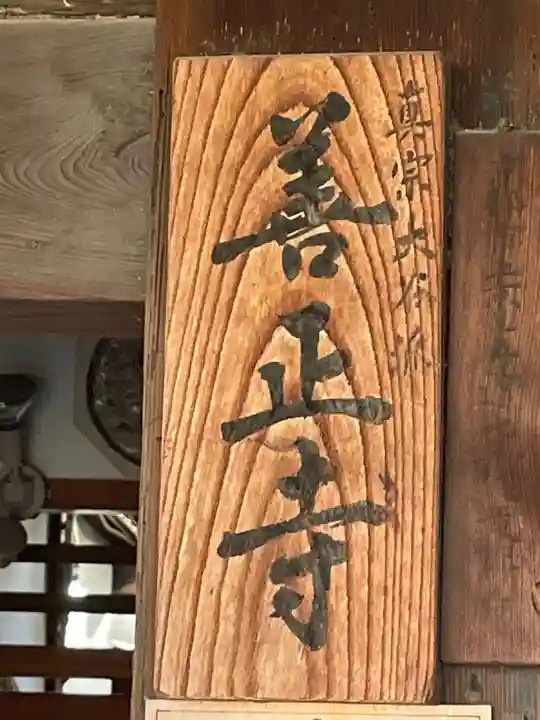 真宗大谷派
善正寺